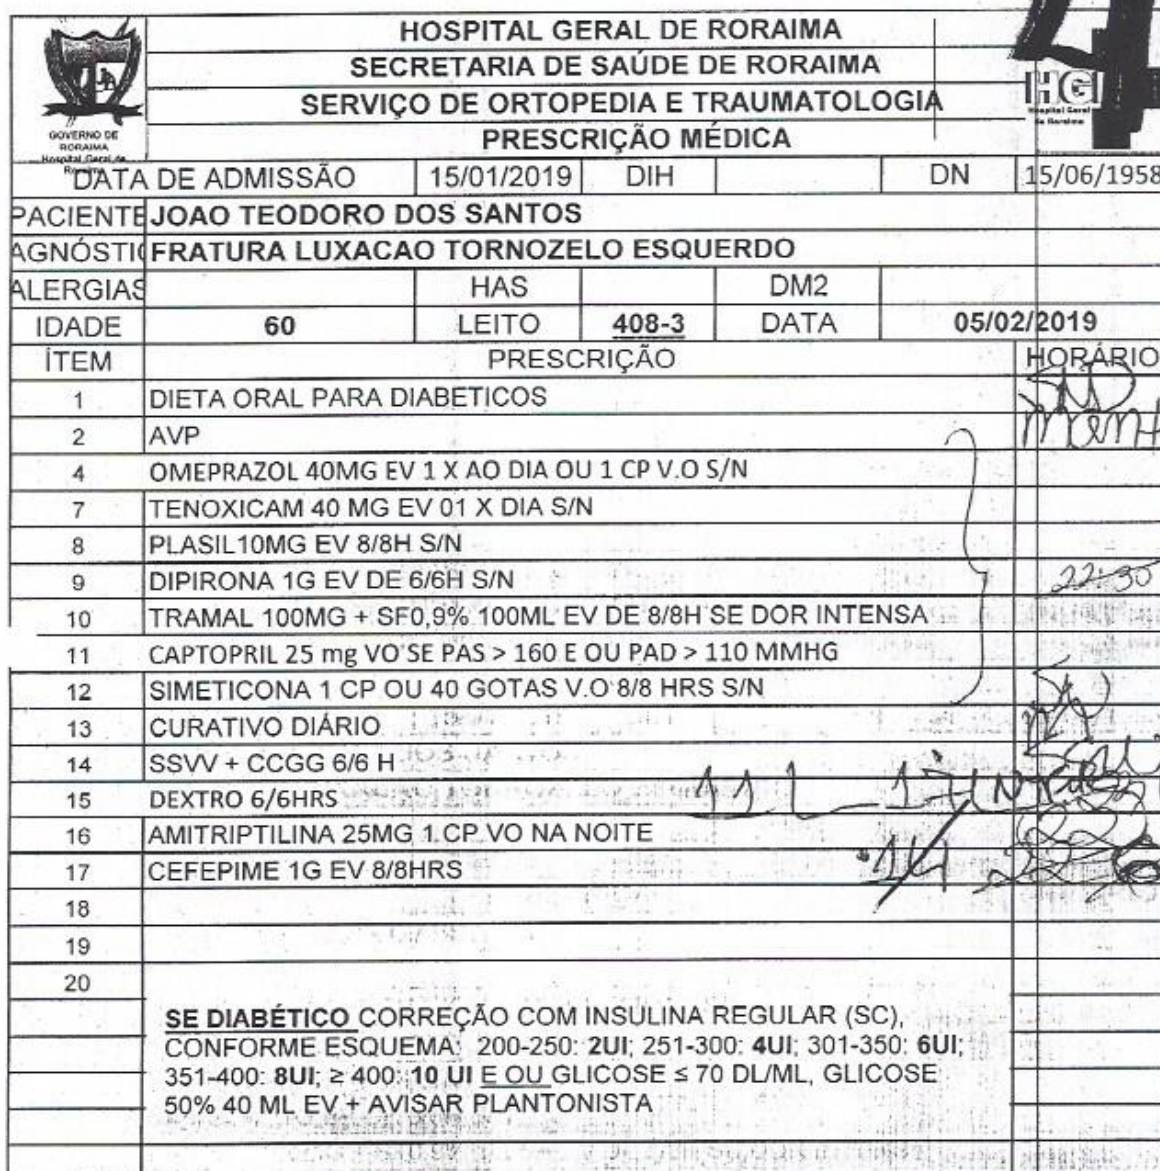 HOSPITAL GERAL DE RORAIMA
SECRETARIA DE SAÚDE DE RORAIMA
SERVIÇO DE ORTOPEDIA E TRAUMATOLOGIA
PRESCRIÇÃO MÉDICA
GOVERNO DE
RORAIMA
Hospital Geral de
Roraima
HGR
Hospital Geral
de Roraima
4
DATA DE ADMISSÃO 15/01/2019 DIH DN 15/06/1958
PACIENTE JOAO TEODORO DOS SANTOS
AGNÓSTIC FRATURA LUXACAO TORNOZELO ESQUERDO
ALERGIAS HAS DM2
IDADE 60 LEITO 408-3 DATA 05/02/2019
ÍTEM PRESCRIÇÃO HORÁRIO
1 DIETA ORAL PARA DIABETICOS SND
2 AVP
4 OMEPRAZOL 40MG EV 1 X AO DIA OU 1 CP V.O S/N
7 TENOXICAM 40 MG EV 01 X DIA S/N
8 PLASIL10MG EV 8/8H S/N
9 DIPIRONA 1G EV DE 6/6H S/N 22:30
10 TRAMAL 100MG + SF0,9% 100ML EV DE 8/8H SE DOR INTENSA
11 CAPTOPRIL 25 mg VO SE PAS > 160 E OU PAD > 110 MMHG
12 SIMETICONA 1 CP OU 40 GOTAS V.O 8/8 HRS S/N
13 CURATIVO DIÁRIO
14 SSVV + CCGG 6/6 H
15 DEXTRO 6/6HRS
16 AMITRIPTILINA 25MG 1 CP VO NA NOITE
17 CEFEPIME 1G EV 8/8HRS 14
18
19
20
SE DIABÉTICO CORREÇÃO COM INSULINA REGULAR (SC),
CONFORME ESQUEMA: 200-250: 2UI; 251-300: 4UI; 301-350: 6UI;
351-400: 8UI; ≥ 400: 10 UI E OU GLICOSE ≤ 70 DL/ML, GLICOSE
50% 40 ML EV + AVISAR PLANTONISTA